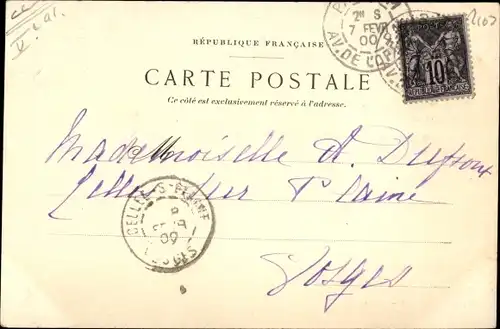 RÉPUBLIQUE FRANÇAISE
CARTE POSTALE
Ce côté est exclusivement réservé à l'adresse.
2E S
7 FEVR
00
AV. DE L'OP
POSTES
10
RÉPUBLIQUE FRANÇAISE
Mademoiselle A. Dufour
Celles sur Plaine
Vosges
CELLES-S-PLAINE
00
VOSGES